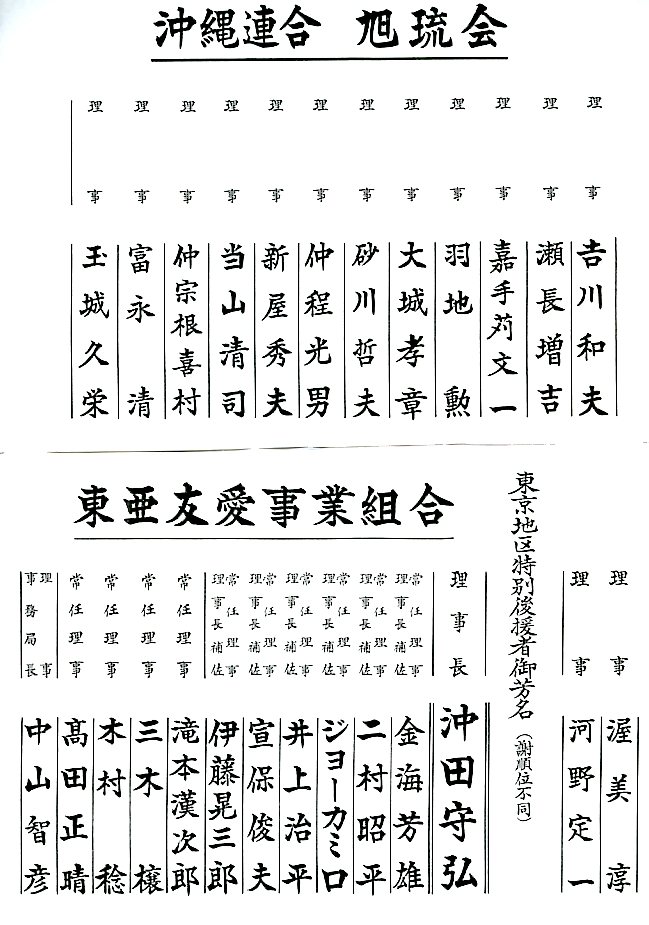 沖縄連合　旭琉会
理事　吉川和夫
理事　瀬長増吉
理事　嘉手苅文一
理事　羽地勲
理事　大城孝章
理事　砂川哲夫
理事　仲程光男
理事　新屋秀夫
理事　当山清司
理事　仲宗根喜村
理事　富永清
理事　玉城久栄
理事　渥美淳
理事　河野定一
東京地区特別後援者御芳名（謝順位不同）
東亜友愛事業組合
理事長　沖田守弘
常任理事　理事長補佐　金海芳雄
常任理事　理事長補佐　二村昭平
常任理事　理事長補佐　ジョーカミロ
常任理事　理事長補佐　井上治平
常任理事　理事長補佐　宣保俊夫
常任理事　理事長補佐　伊藤晃三郎
常任理事　滝本漢次郎
常任理事　三木穣
常任理事　木村稔
常任理事　髙田正晴
理事　事務局長　中山智彦